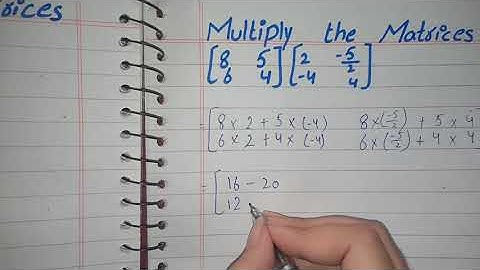 rices
Multiply the Matrices
[8 5] [2 -5/2]
[6 4] [-4 4]
= [8 × 2 + 5 × (-4) 8 × (-5/2) + 5 × 4
6 × 2 + 4 × (-4) 6 × (-5/2) + 4 × 4
= [16 - 20
12